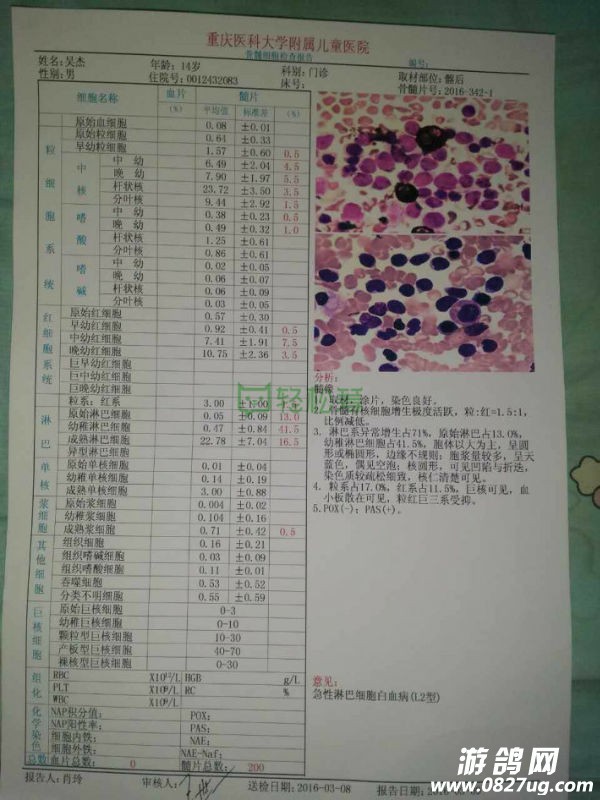 重庆医科大学附属儿童医院
骨髓细胞检查报告
姓名:吴杰 年龄:14岁 科别:门诊 编号:
性别:男 住院号:0012432083 床号: 取材部位:髂后
骨髓片号:2016-342-1
细胞名称 血片 髓片
(%) 平均值 标准差 (%)
粒细胞系统
原始血细胞 0.08 ±0.01
原始粒细胞 0.64 ±0.33
早幼粒细胞 1.57 ±0.60 0.5
中核
中幼 6.49 ±2.04 4.5
晚幼 7.90 ±1.97 5.5
杆状核 23.72 ±3.50 3.5
分叶核 9.44 ±2.92 1.5
嗜酸
中幼 0.38 ±0.23 0.5
晚幼 0.49 ±0.32 1.0
杆状核 1.25 ±0.61
分叶核 0.86 ±0.61
嗜碱
中幼 0.02 ±0.05
晚幼 0.06 ±0.07
杆状核 0.06 ±0.06
分叶核 0.03 ±0.05
红细胞系统
原始红细胞 0.57 ±0.30
早幼红细胞 0.92 ±0.41 0.5
中幼红细胞 7.41 ±1.91 7.5
晚幼红细胞 10.75 ±2.36 3.5
巨早幼红细胞
巨中幼红细胞
巨晚幼红细胞
粒系:红系 3.00 ±1.00
淋巴
原始淋巴细胞 0.05 ±0.09 13.0
幼稚淋巴细胞 0.47 ±0.84 41.5
成熟淋巴细胞 22.78 ±7.04 16.5
异型淋巴细胞
单核
原始单核细胞 0.01 ±0.04
幼稚单核细胞 0.14 ±0.19
成熟单核细胞 3.00 ±0.88
浆细胞
原始浆细胞 0.004 ±0.02
幼稚浆细胞 0.104 ±0.16
成熟浆细胞 0.71 ±0.42 0.5
其他细胞
组织细胞 0.16 ±0.21
组织嗜碱细胞 0.03 ±0.09
组织嗜酸细胞 0.11 ±0.01
吞噬细胞 0.53 ±0.52
分类不明细胞 0.55 ±0.59
巨核细胞
原始巨核细胞 0-3
幼稚巨核细胞 0-10
颗粒型巨核细胞 10-30
产板型巨核细胞 40-70
裸核型巨核细胞 0-30
组化
RBC X10¹²/L HGB g/L
PLT X10⁹/L RC %
WBC X10⁹/L
化学染色
NAP积分值: POX:
NAP阳性率: PAS:
细胞内铁: NAE:
细胞外铁: NAE-Naf:
总数 血片总数: 0 髓片总数: 200
报告人:肖玲 审核人: 送检日期:2016-03-08 报告日期:2016-03-
分析:
髓像
1. 取材、涂片,染色良好。
2. 骨髓有核细胞增生极度活跃,粒:红=1.5:1,
比例减低。
3. 淋巴系异常增生占71%,原始淋巴占13.0%,
幼稚淋巴细胞占41.5%,胞体以大为主,呈圆
形或椭圆形,边缘不规则;胞浆量较多,呈天
蓝色,偶见空泡;核圆形,可见凹陷与折迭,
染色质较疏松细致,核仁清楚可见。
4. 粒系占17.0%,红系占11.5%,巨核可见,血
小板散在可见,粒红巨三系受抑。
5.POX(-);PAS(+)。
意见:
急性淋巴细胞白血病(L2型)
轻松筹
游鸽网
www.0827ug.com